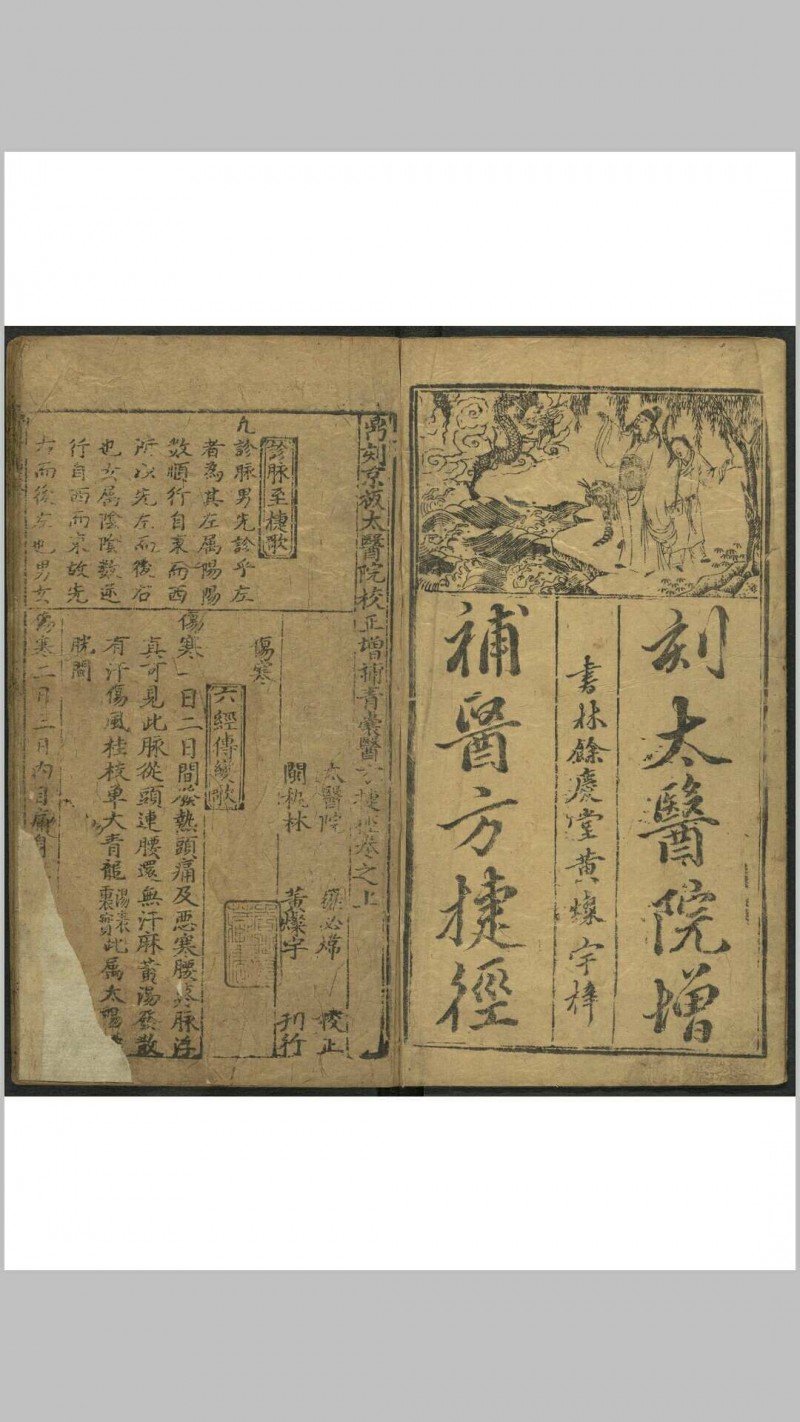 刻太醫院增
書林餘慶堂黃燦宇梓
補醫方捷徑
刻京板太醫院校正增補青囊醫方捷徑卷之上
太醫院 羅必煒 校正
閩 林 黃燦宇 刊行
診脉至捷歌
凡診脉男先診乎左
者為其左属陽陽
数順行自東而西
所以先左而後右
也女属陰陰数逆
行自西而東故先
右而後左也男女
傷寒
六經傳變歌
傷寒一日二日間發熱頭痛及惡寒腰 脉浮
真可見此脉從頭連腰還無汗麻黃湯發散
有汗傷風桂枝單大青龍湯表裏實此属太陽
胱間
傷寒二日三日内目痛身